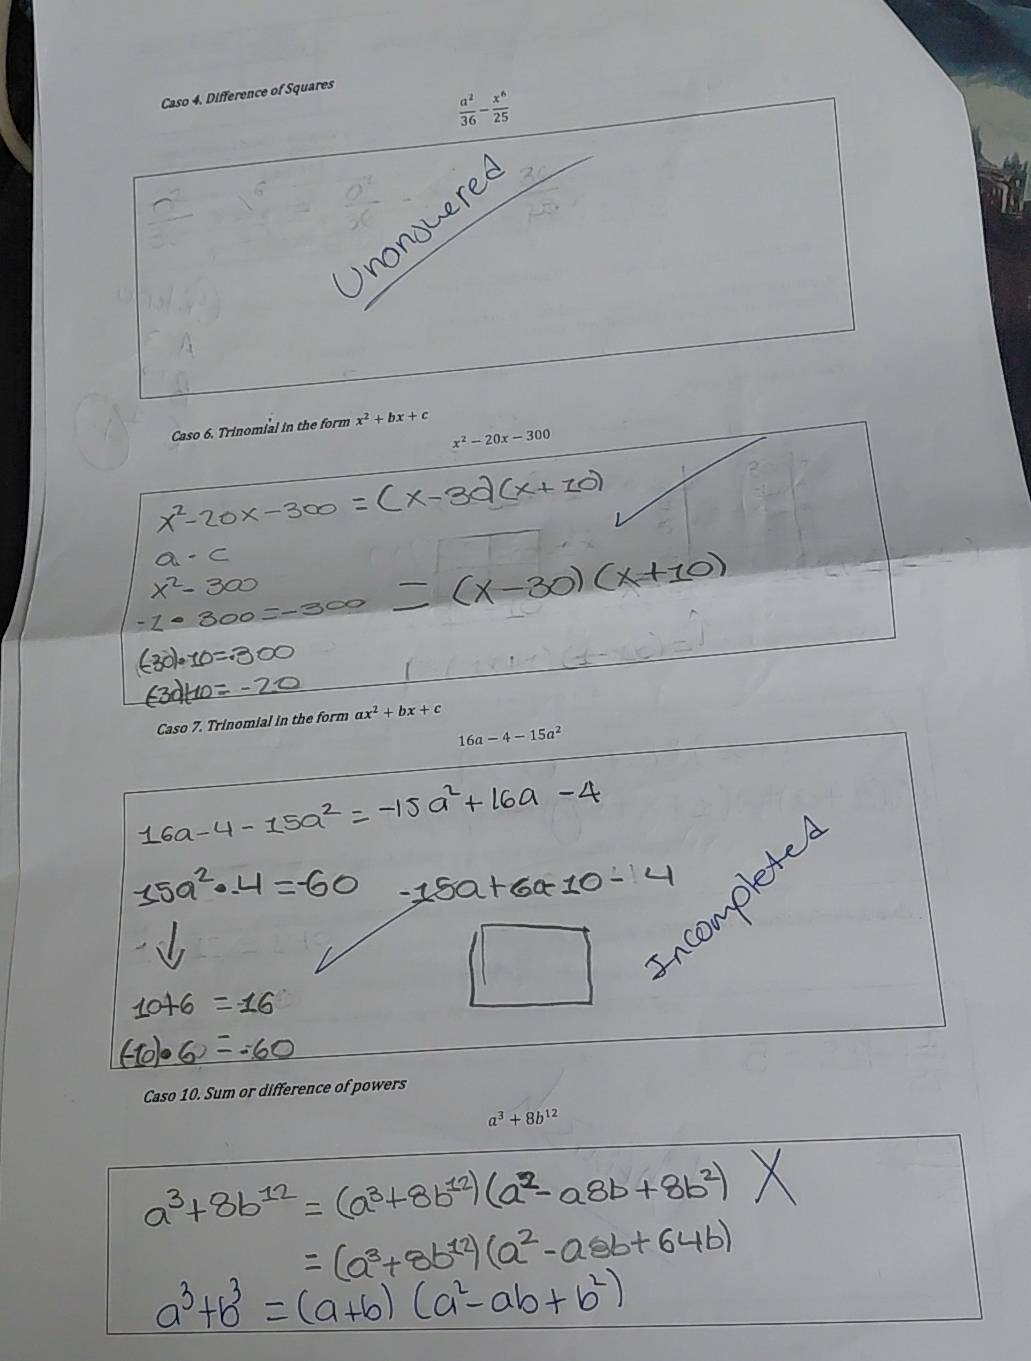 Caso 4. Difference of Squares
a²/36 − x⁶/25
Unanswered
Caso 6. Trinomial in the form x² + bx + c
x² − 20x − 300
x²-20x-300 = (x-30)(x+10)
a · c
x²- 300
-1 • 300 = -300
= (x-30) (x+10)
(-30)•10=-300
(-30)+10= -20
Caso 7. Trinomial in the form ax² + bx + c
16a − 4 − 15a²
16a-4-15a² = -15a²+16a -4
15a²•-4 =-60 -15a+6a-10-4
Incompleted
↓
10+6 = -16
(-10)•6 = -60
Caso 10. Sum or difference of powers
a³ + 8b¹²
a³+8b¹² = (a³+8b¹²)(a²-a8b+8b²) X
= (a³+8b¹²)(a²-a8b+64b)
a³+b³ = (a+b) (a²-ab+b²)